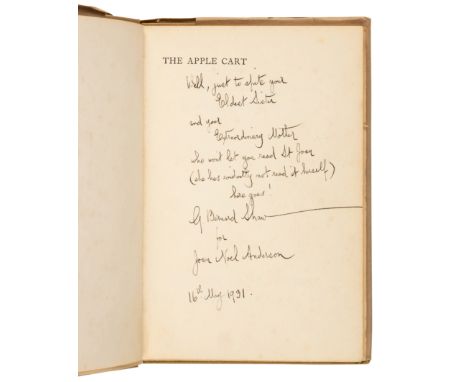 THE APPLE CART
Well, just to spite your
Eldest Sister
and your
Extraordinary Mother
who won't let you read St Joan
(she has evidently not read it herself)
here goes!
G Bernard Shaw
for
Joan Noel Anderson
16th May 1931.